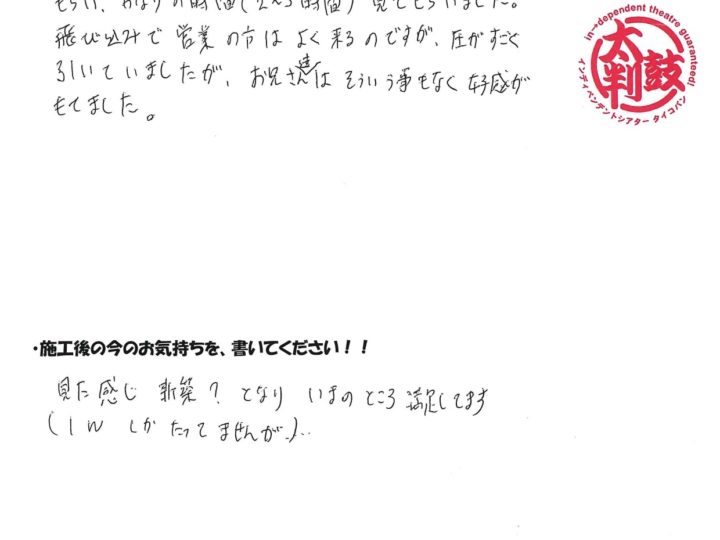 もらい、かなりの時間(2〜3時間)見てもらいました。
飛び込みで営業の方はよく来るのですが、圧がすごく
引いていましたが、お兄さん達はそういう事もなく好感が
もてました。
in→dependent theatre guaranteed!
太鼓判
インディペンデントシアター タイコバン
・施工後の今のお気持ちを、書いてください！！
見た感じ 新築？となり いまのところ満足してます
(1W しかたってませんが)…